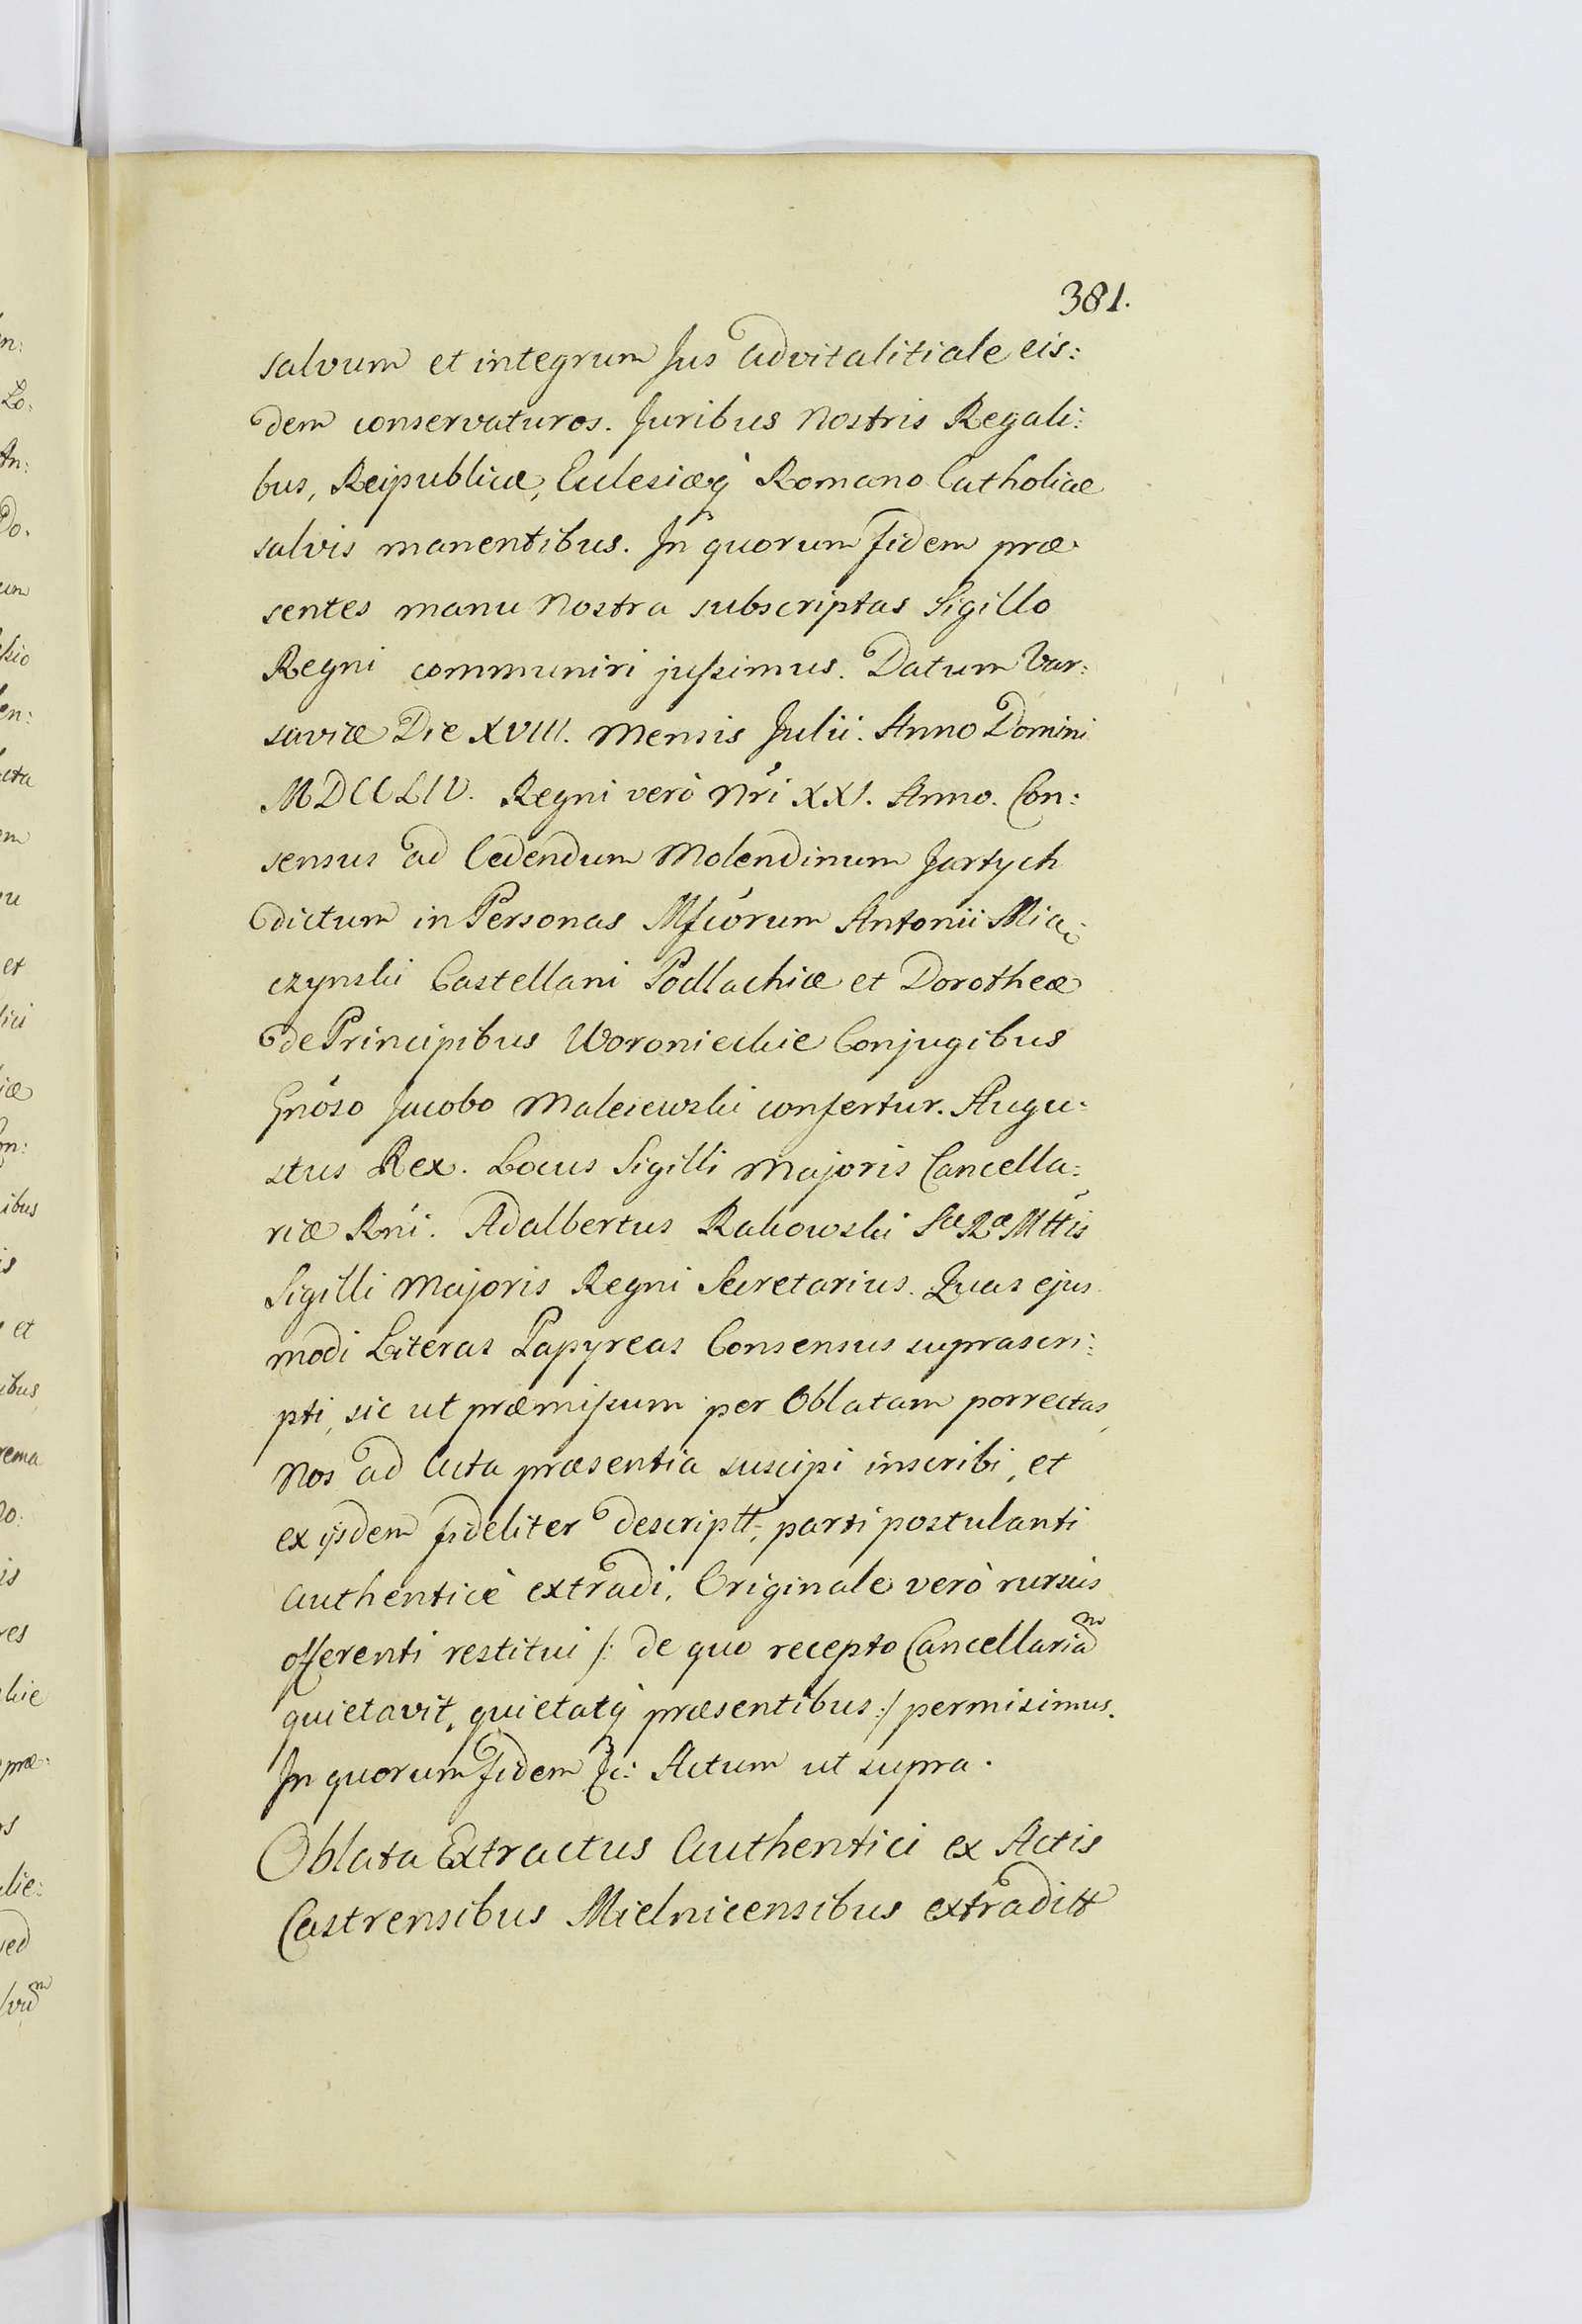 381.
salvum et integrum Jus advitalitiale eis:
dem conservaturos. Juribus Nostris Regali:
bus, Reipublicæ, Eclesiæq̀ Romano Catholicæ
salvis manentibus. In quorum Fidem præ
sentes manu Nostra subscriptas Sigillo
Regni communiri jussimus. Datum Var:
saviæ Die XVIII. Mensis Julii. Anno Domini
MDCCLIV. Regni verò Nrĩ XXI. Anno. Con:
sensus ad Cedendum Molendinum Jartych
dictum in Personas Mfcórum Antonii Mią:
czynski Castellani Podlachiæ et Dorotheæ
de Principibus Woronieckie Conjugibus
Gnóso Jacobo Maleiewski confertur. Augu:
stus Rex. Locus Sigilli Majoris Cancella:
riæ Rńi. Adalbertus Rakowski Sæ Ræ Mttis
Sigilli Majoris Regni Secretarius. Quas ejus
modi Literas Papyreas Consensus suprascri:
pti, sic ut præmissum per Oblatam porrectas,
Nos ad Acta præsentia suscipi inscribi, et
ex ijsdem fideliter descriptt, parti postulanti
authenticè extradi. Originale verò rursus
offerenti restitui /: de quo recepto Cancellariam
quietavit, quietatq̀ præsentibus :/ permisimus.
In quorum Fidem &c: Actum ut supra.
Oblata Extractus Authentici ex Actis
Castrensibus Mielnicensibus extraditt